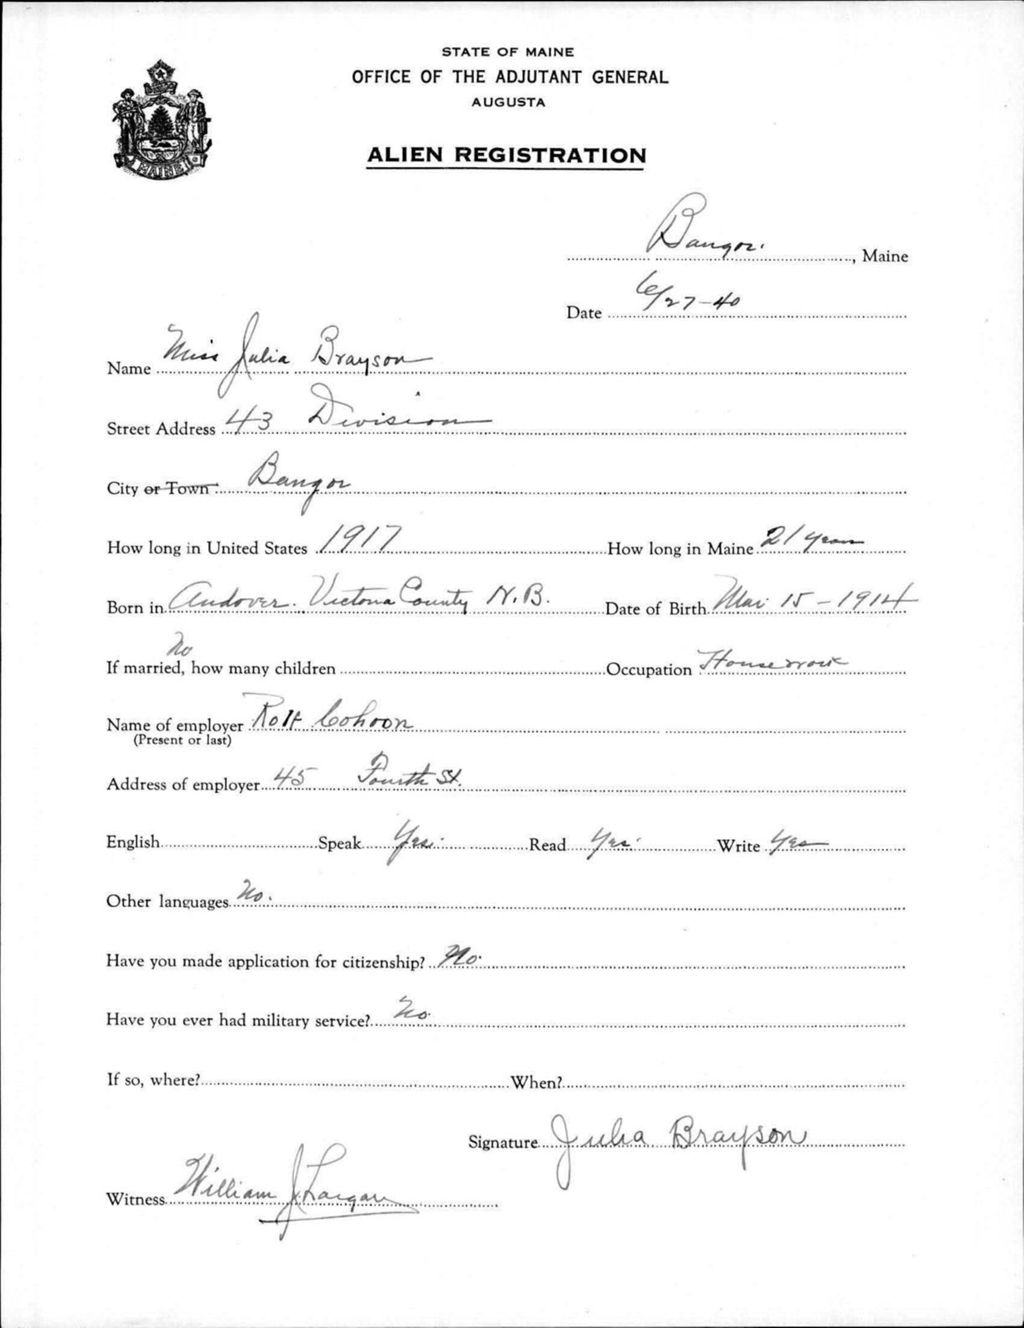 STATE OF MAINE
OFFICE OF THE ADJUTANT GENERAL
AUGUSTA
MAINE
ALIEN REGISTRATION
Bangor, Maine
Date 6/27-40
Name Miss Julia Brayson
Street Address 43 Division
City or Town Bangor
How long in United States 1917 How long in Maine 21 years
Born in Andover. Victoria County N.B. Date of Birth Mar 15-1914
No
If married, how many children Occupation Housework
Name of employer Robt Cohoon
(Present or last)
Address of employer 45 Fourth St.
English Speak Yes. Read Yes. Write Yes
Other languages No.
Have you made application for citizenship? No.
Have you ever had military service? No.
If so, where? When?
Signature Julia Brayson
Witness William J. Largan